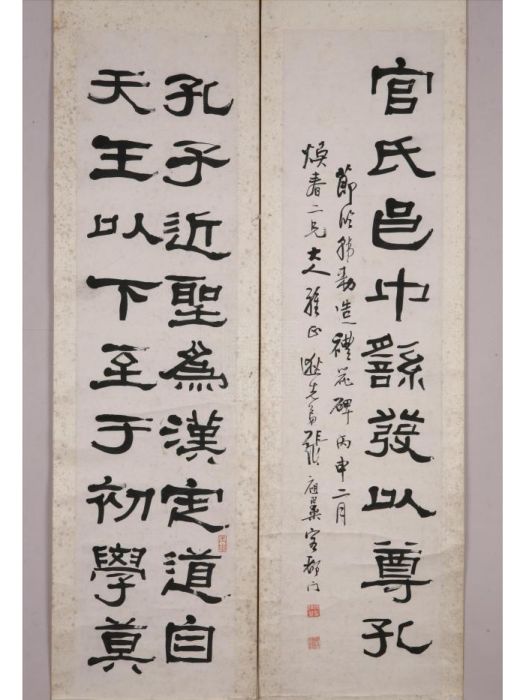 官氏邑中繇發以尊孔
節臨韓勑造禮器碑丙申二月
煥春二兄大人雅正逖先弟張祖翼客都門
孔子近聖為漢定道自
天王以下至于初學莫